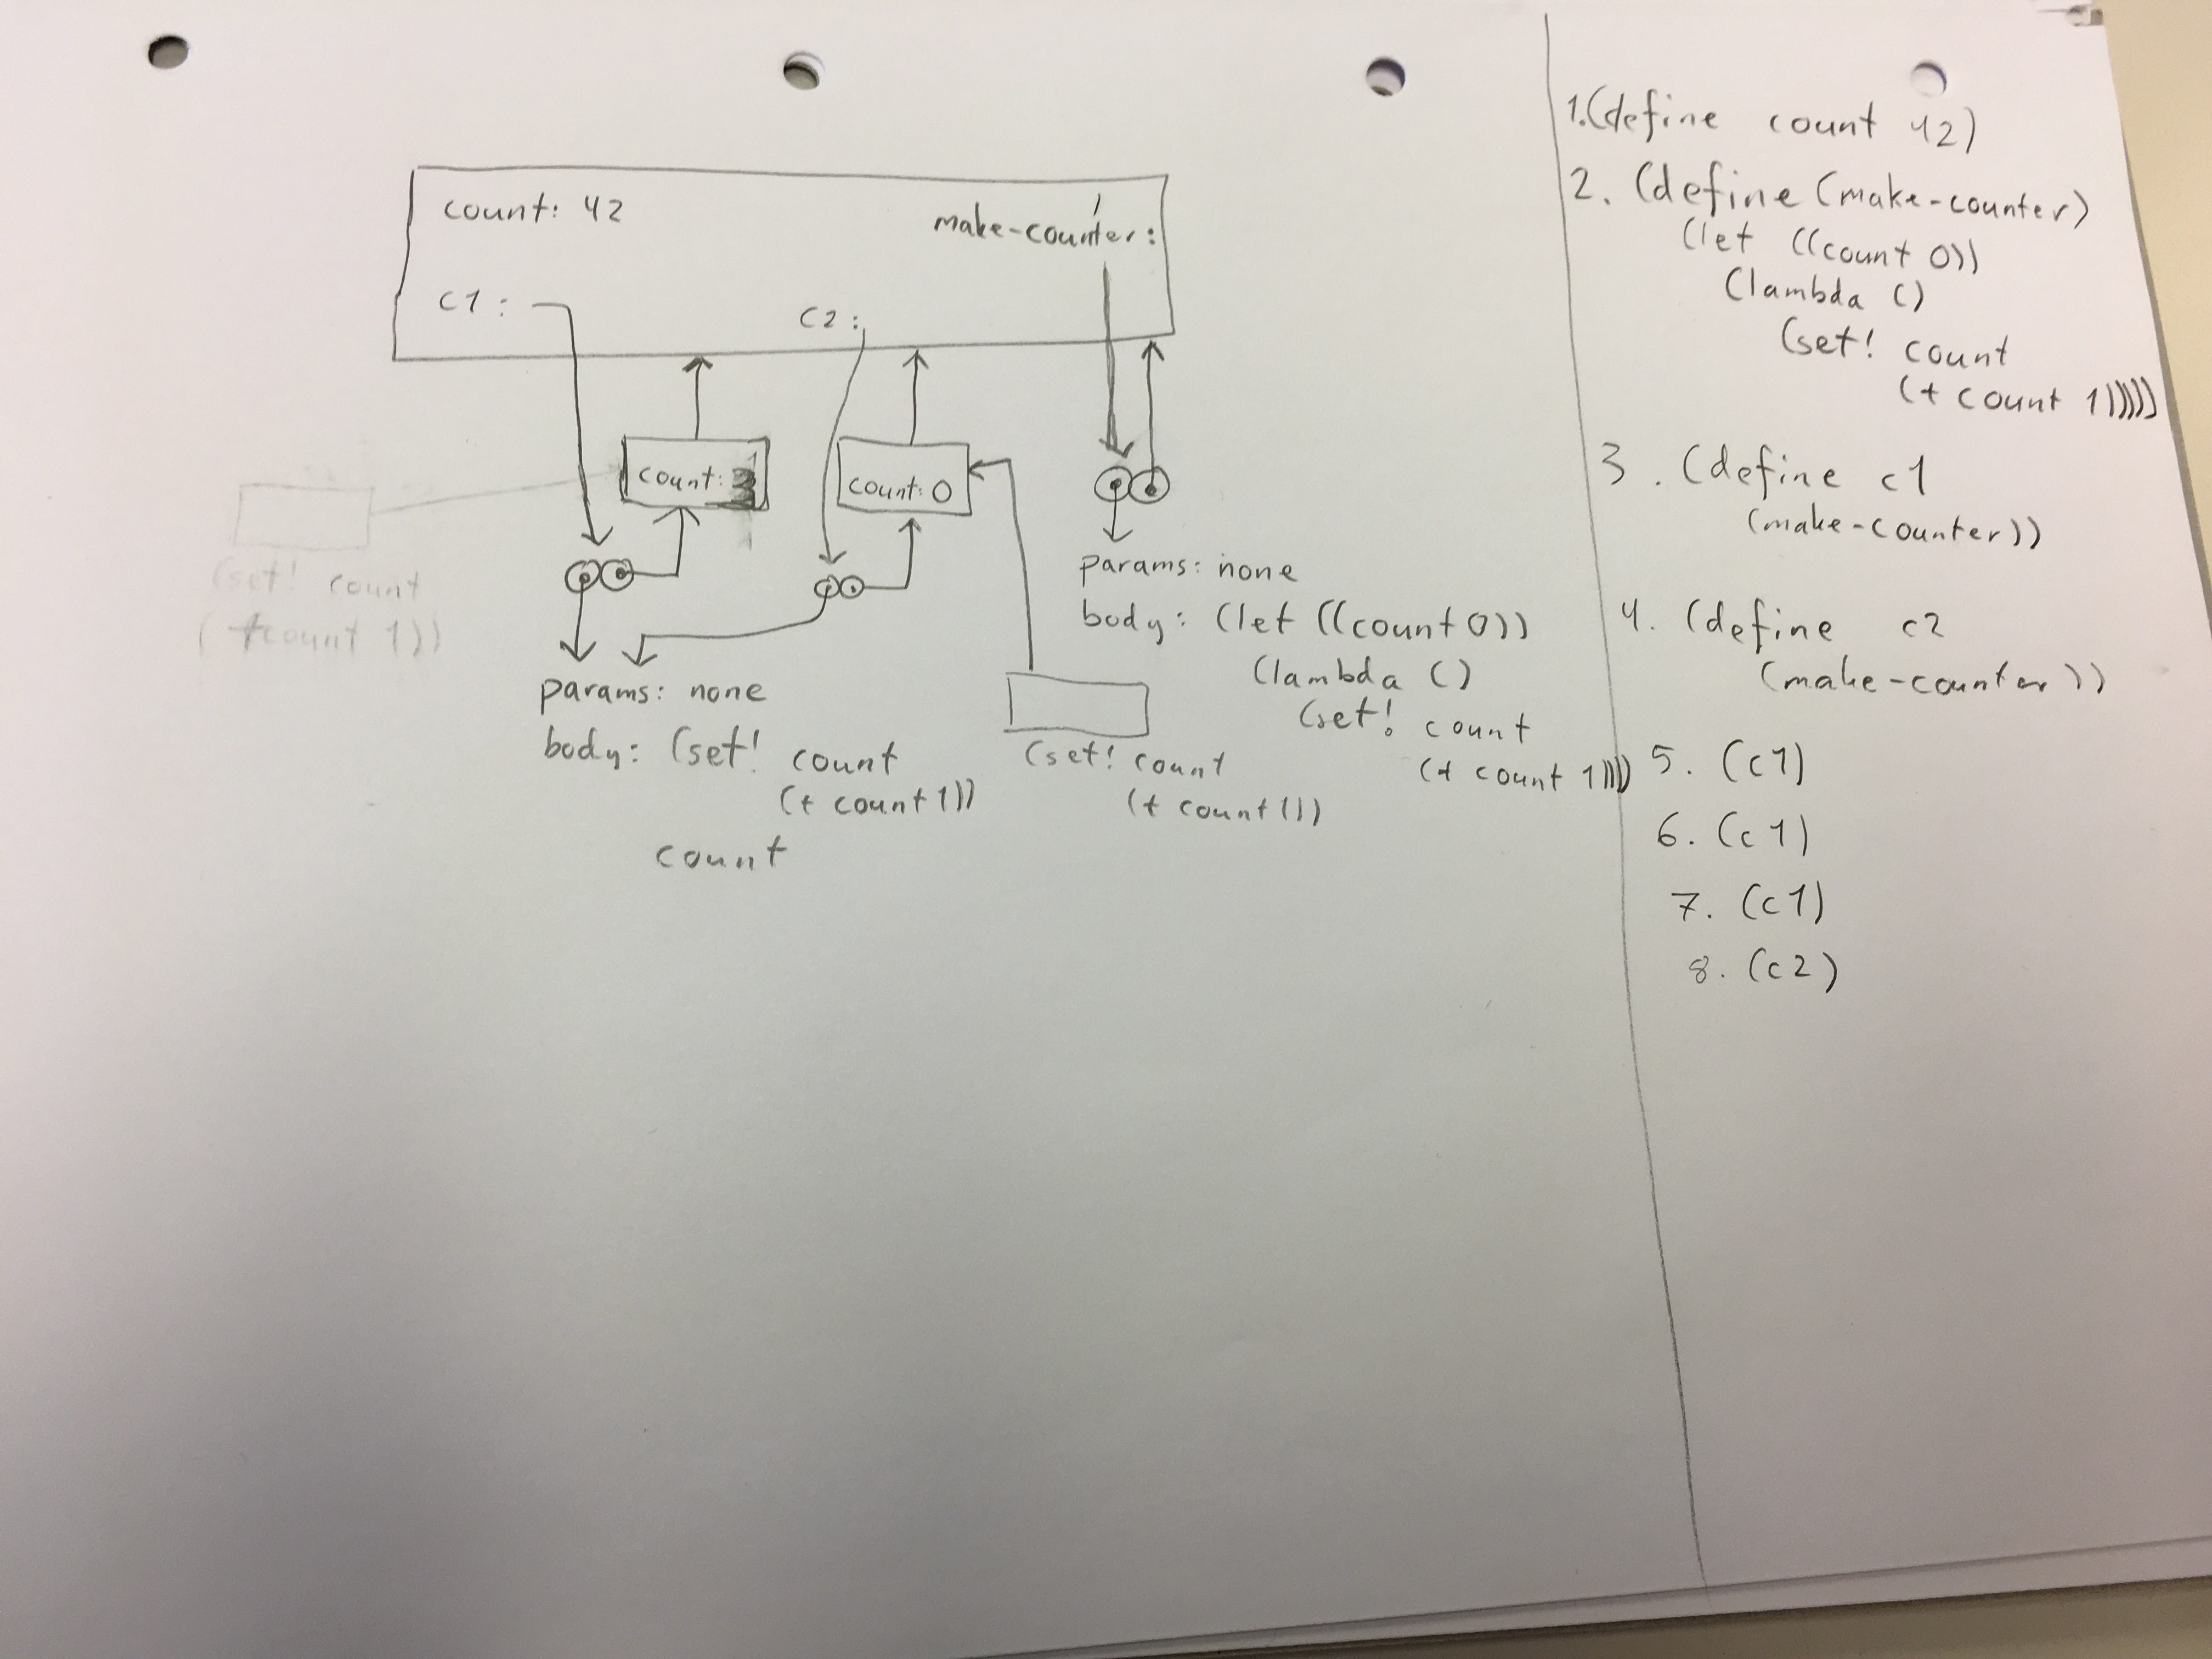 count: 42
make-counter:
c1 :
c2 :
count:
count: 0
(set! count
( +count 1))
params: none
body: (set! count
(+ count 1))
count
(set! count
(+ count 1))
params: none
body: (let ((count 0))
(lambda ()
(set! count
(+ count 1))))
1.(define count 42)
2. (define (make-counter)
(let ((count 0))
(lambda ()
(set! count
(+ count 1)))))
3. (define c1
(make-counter))
4. (define c2
(make-counter))
5. (c1)
6. (c1)
7. (c1)
8. (c2)